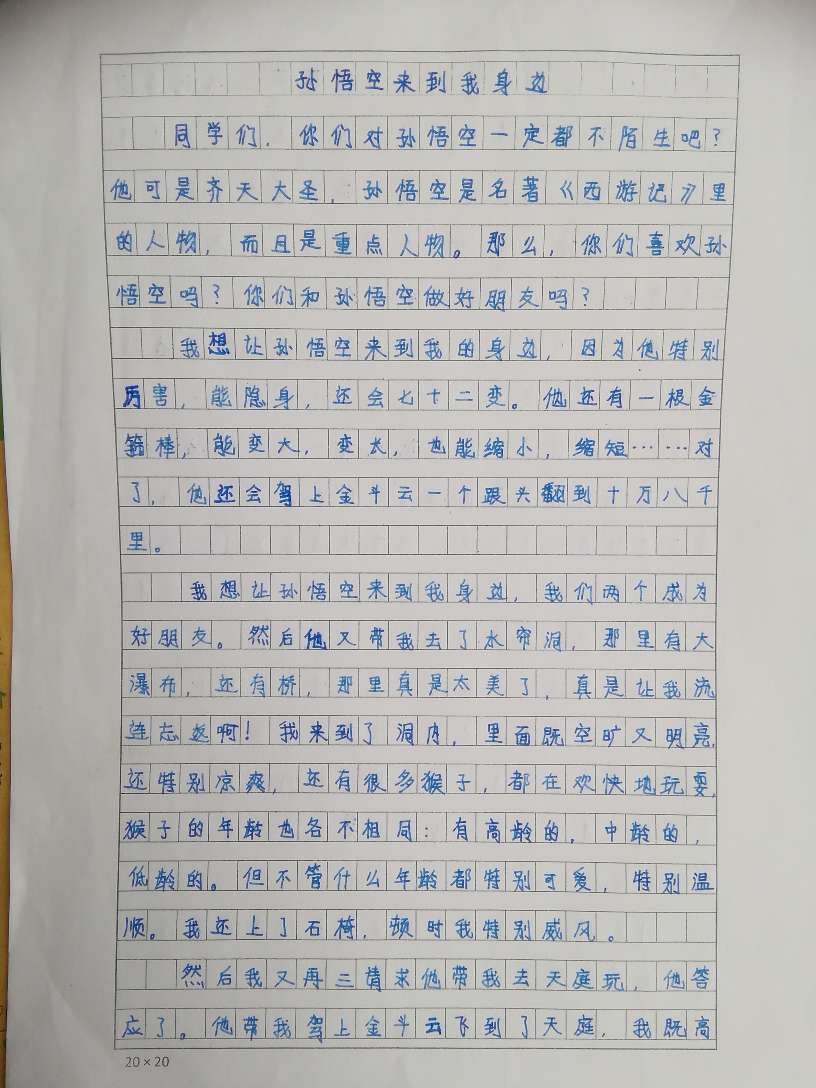 孙悟空来到我身边
同学们，你们对孙悟空一定都不陌生吧？
他可是齐天大圣，孙悟空是名著《西游记》里
的人物，而且是重点人物。那么，你们喜欢孙
悟空吗？你们和孙悟空做好朋友吗？
我想让孙悟空来到我的身边，因为他特别
厉害，能隐身，还会七十二变。他还有一根金
箍棒，能变大，变长，也能缩小，缩短……对
了，他还会驾上金斗云一个跟头翻到十万八千
里。
我想让孙悟空来到我身边，我们两个成为
好朋友。然后他又带我去了水帘洞，那里有大
瀑布，还有桥，那里真是太美了，真是让我流
连忘返啊！我来到了洞内，里面既空旷又明亮，
还特别凉爽，还有很多猴子，都在欢快地玩耍，
猴子的年龄也各不相同：有高龄的，中龄的，
低龄的。但不管什么年龄都特别可爱，特别温
顺。我还上了石椅，顿时我特别威风。
然后我又再三请求他带我去天庭玩，他答
应了。他带我驾上金斗云飞到了天庭，我既高
20×20